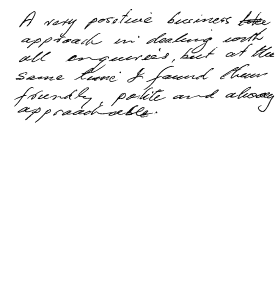 A very positive business
approach in dealing with
all enquiries, but at the
same time I found them
friendly, polite and always
approachable.